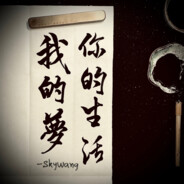 你的生活
我的夢
-Skywang